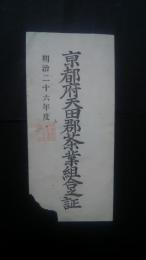 京都府天田郡茶業組合之証
明治二十六年度